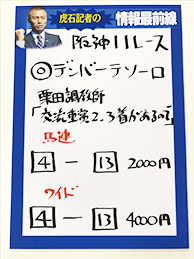 虎石記者の
情報最前線
阪神11レース
◎デンバーテソーロ
栗田調教師
「交流重賞2、3着があるので」
馬連
4 － 13 2000円
ワイド
4 － 13 4000円